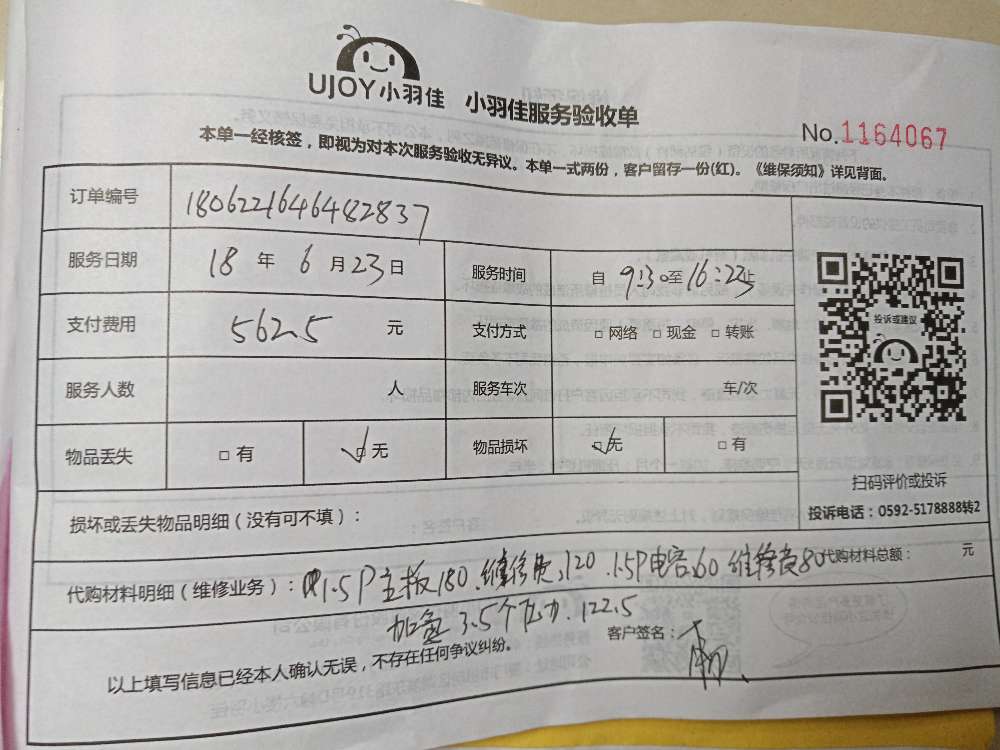 UJOY小羽佳 小羽佳服务验收单
No.1164067
本单一经核签，即视为对本次服务验收无异议。本单一式两份，客户留存一份(红)。《维保须知》详见背面。
订单编号 1806221646482837
服务日期 18 年 6 月 23 日 服务时间 自 9:30 至 16:22 止
支付费用 562.5 元 支付方式 □ 网络 □ 现金 □ 转账
投诉或建议
服务人数 人 服务车次 车/次
物品丢失 □ 有 □ 无 物品损坏 □ 无 □ 有
扫码评价或投诉
投诉电话：0592-5178888转2
损坏或丢失物品明细（没有可不填）：
代购材料明细（维修业务）： 1.5P主板180.维修费120.1.5P电容60维修费80 代购材料总额： 元
加氟3.5个压力.122.5
客户签名：
以上填写信息已经本人确认无误，不存在任何争议纠纷。